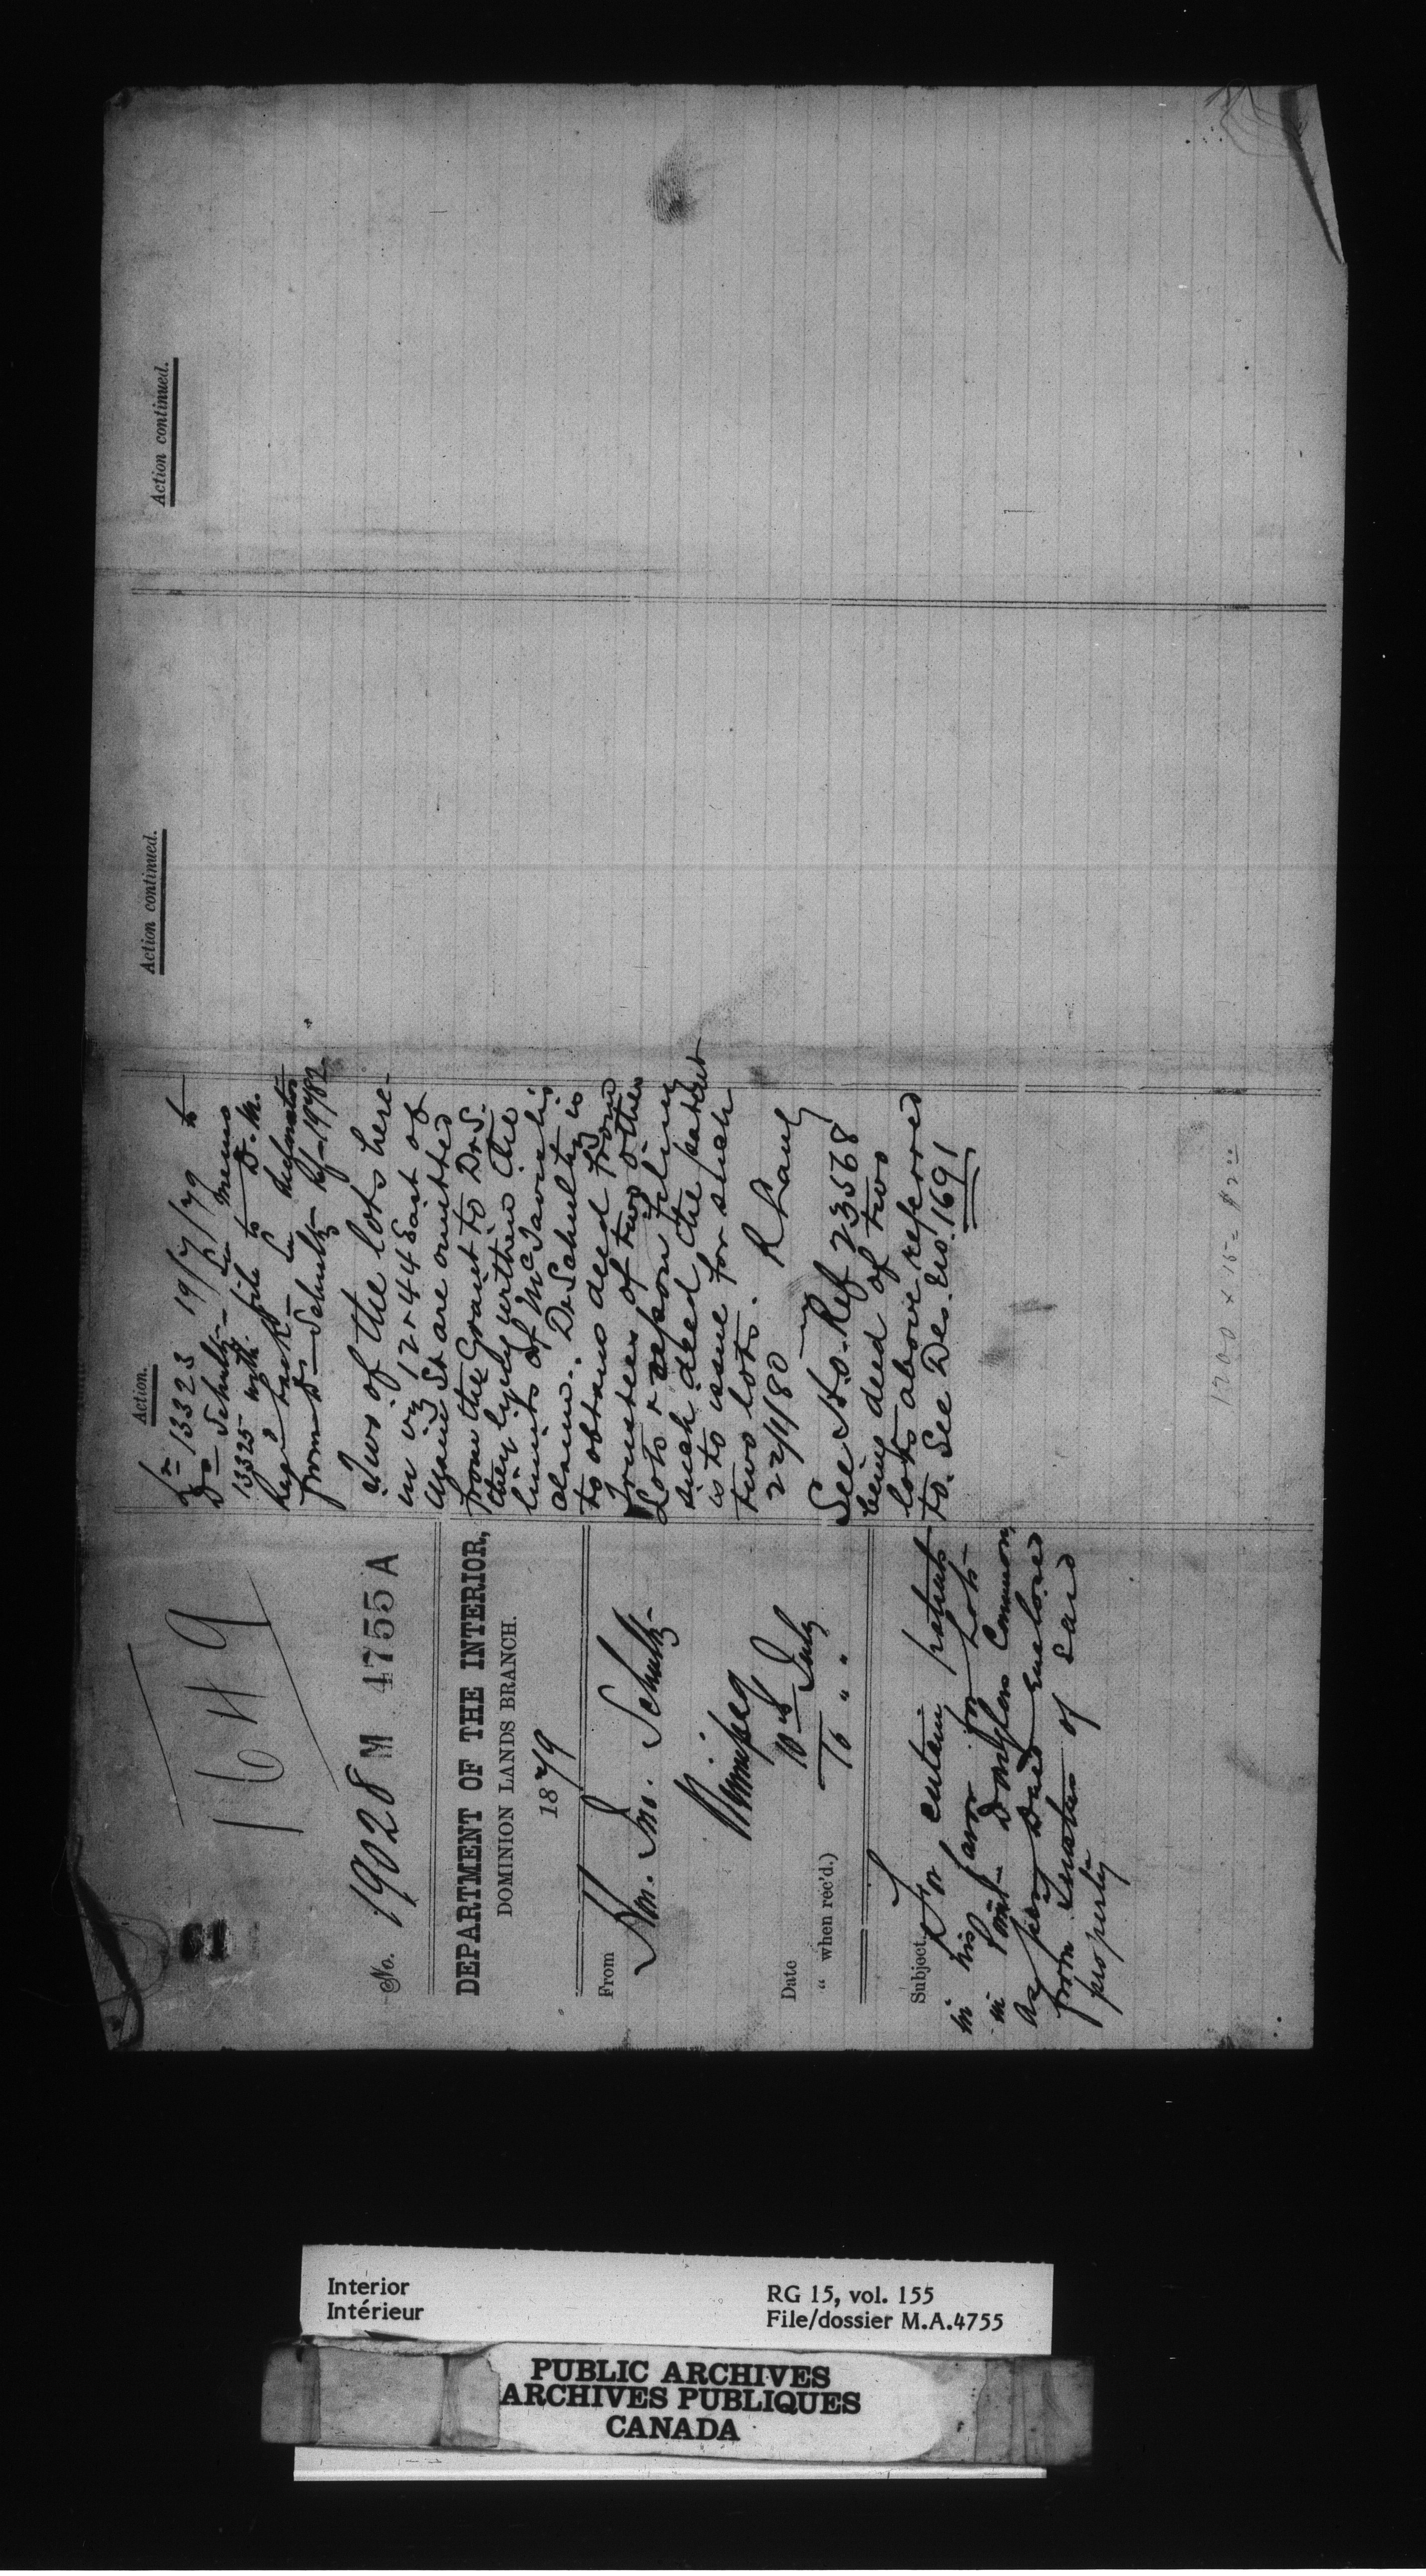 1649
No. 19028 M 4755 A
DEPARTMENT OF THE INTERIOR,
DOMINION LANDS BRANCH.
1879
From Hon. Jno. Schultz
Winnipeg
Date 10th July
" when rec'd.) 16 " "
Subject, For certain patents
in his favor for Lots
in Point Douglas Common,
as per Deed enclosed
from Trustees of said
property
Action.
13323 19/7/79 to
Dr Schultz
13325 with file to D.M.
from Dr Schultz Rf 19782
Two of the lots here-
in viz 12 & 44 East of
Main St are omitted
from the Grant to Dr S.
they lying within the
limits of McTavish's
claim. Dr Schultz is
to obtain deed from
Trustees of two other
Lots & upon filing
such deed the patent
is to issue for such
two lots.
22/4/80 R Lang
See H.O. Ref 23568
being deed of two
lots above referred
to. See Des. No. 1691
Action continued.
Action continued.
1200 x 15 = $2 00
Interior
Intérieur
RG 15, vol. 155
File/dossier M.A.4755
PUBLIC ARCHIVES
ARCHIVES PUBLIQUES
CANADA